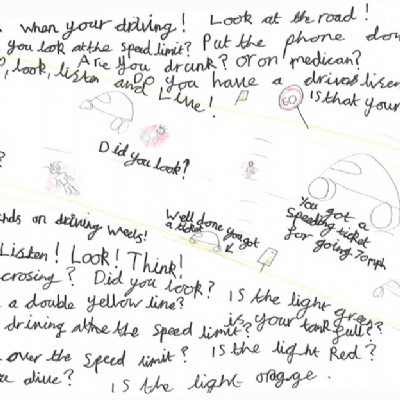 when your driving! Look at the road!
you look at the speed limit? Put the phone dow
Are you drunk? or on medican?
look, listen and Live! Do you have a drivers lisen
60
Is that your
Did you look?
You got a speeding ticket for going 70mph
Well done you got a ticket
nds on driving weels!
Listen! Look! Think!
crosing? Did you look? Is the light green?
a double yellow line? is your tank full?
drining at the speed limit?
over the speed limit? Is the light Red?
alive? is the light orange.